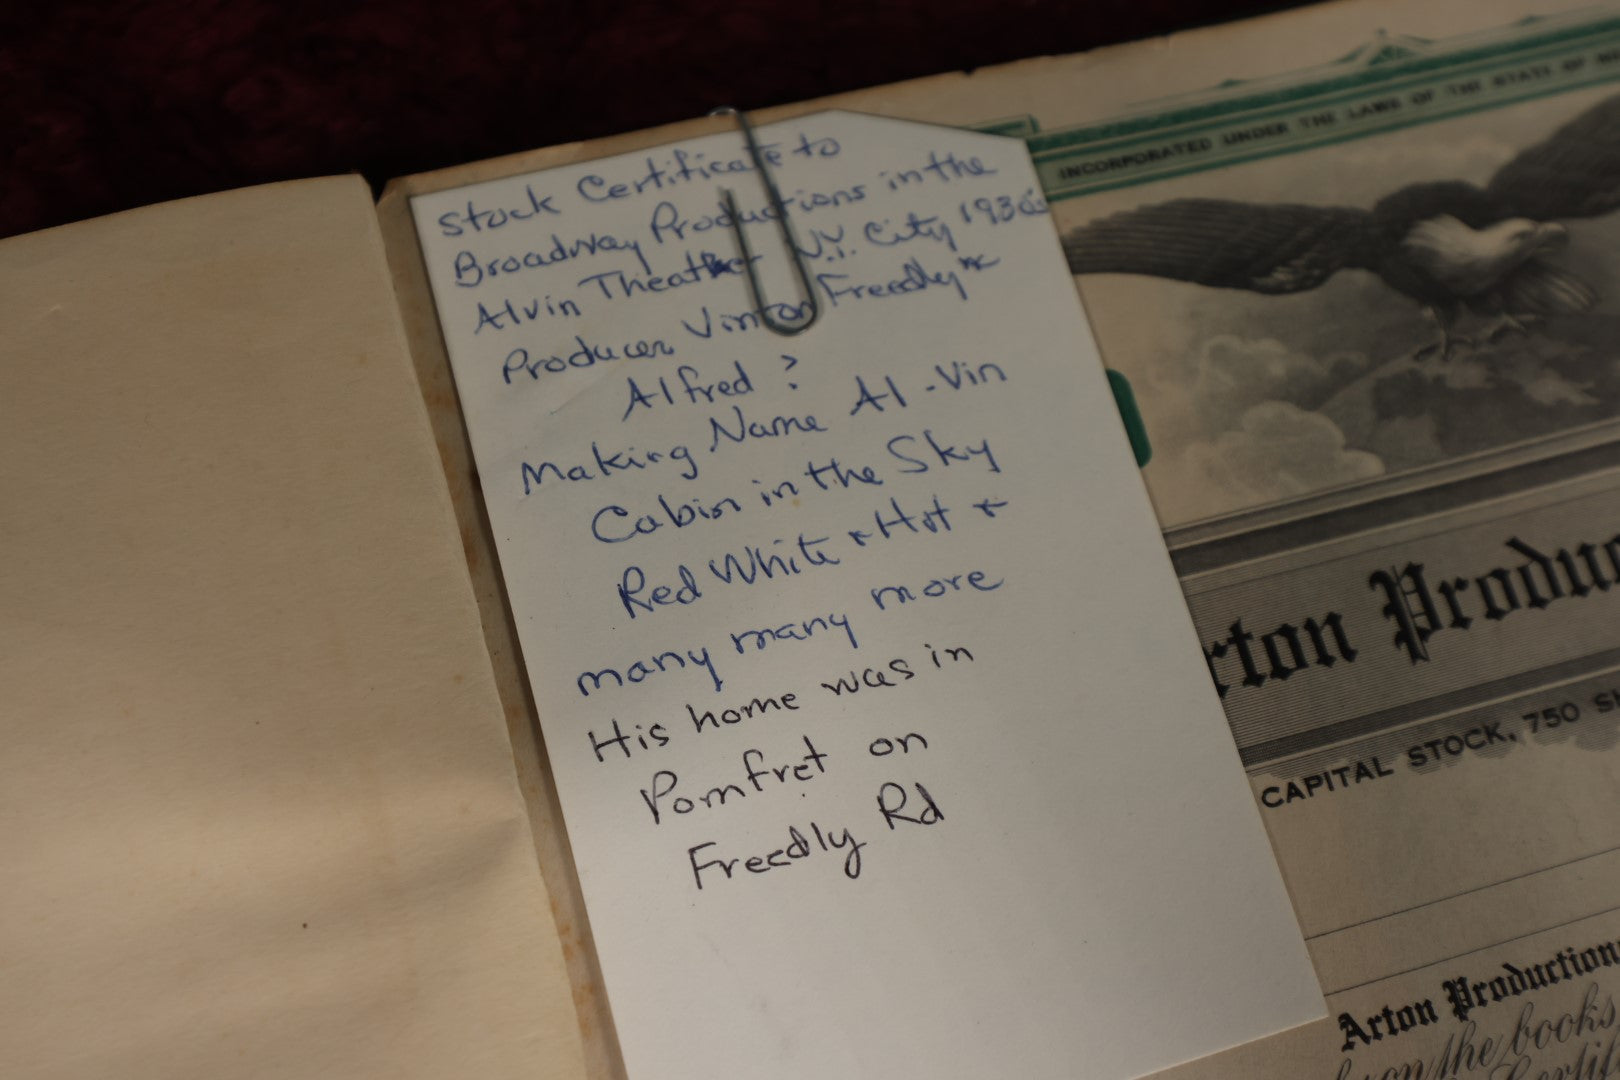 Stock Certificate to
Broadway Productions in the
Alvin Theatre N.Y. City 1930's
Producer Vinton Freedly *
Alfred ?
Making Name Al-Vin
Cabin in the Sky
Red White & Hot &
many many more
His home was in
Pomfret on
Freedly Rd
INCORPORATED UNDER THE LAWS OF THE STATE OF
rton Produc
CAPITAL STOCK, 750 SH
Arton Production
on the books
Certif